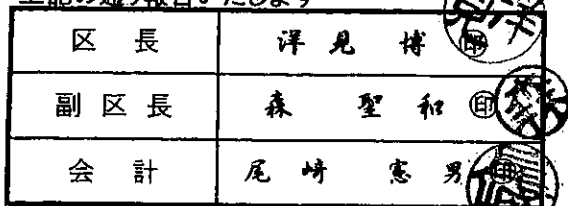 上記の通り報告いたします
区長 洋見 博 ㊞
副区長 森 聖和 ㊞
会計 尾崎 憲男 ㊞